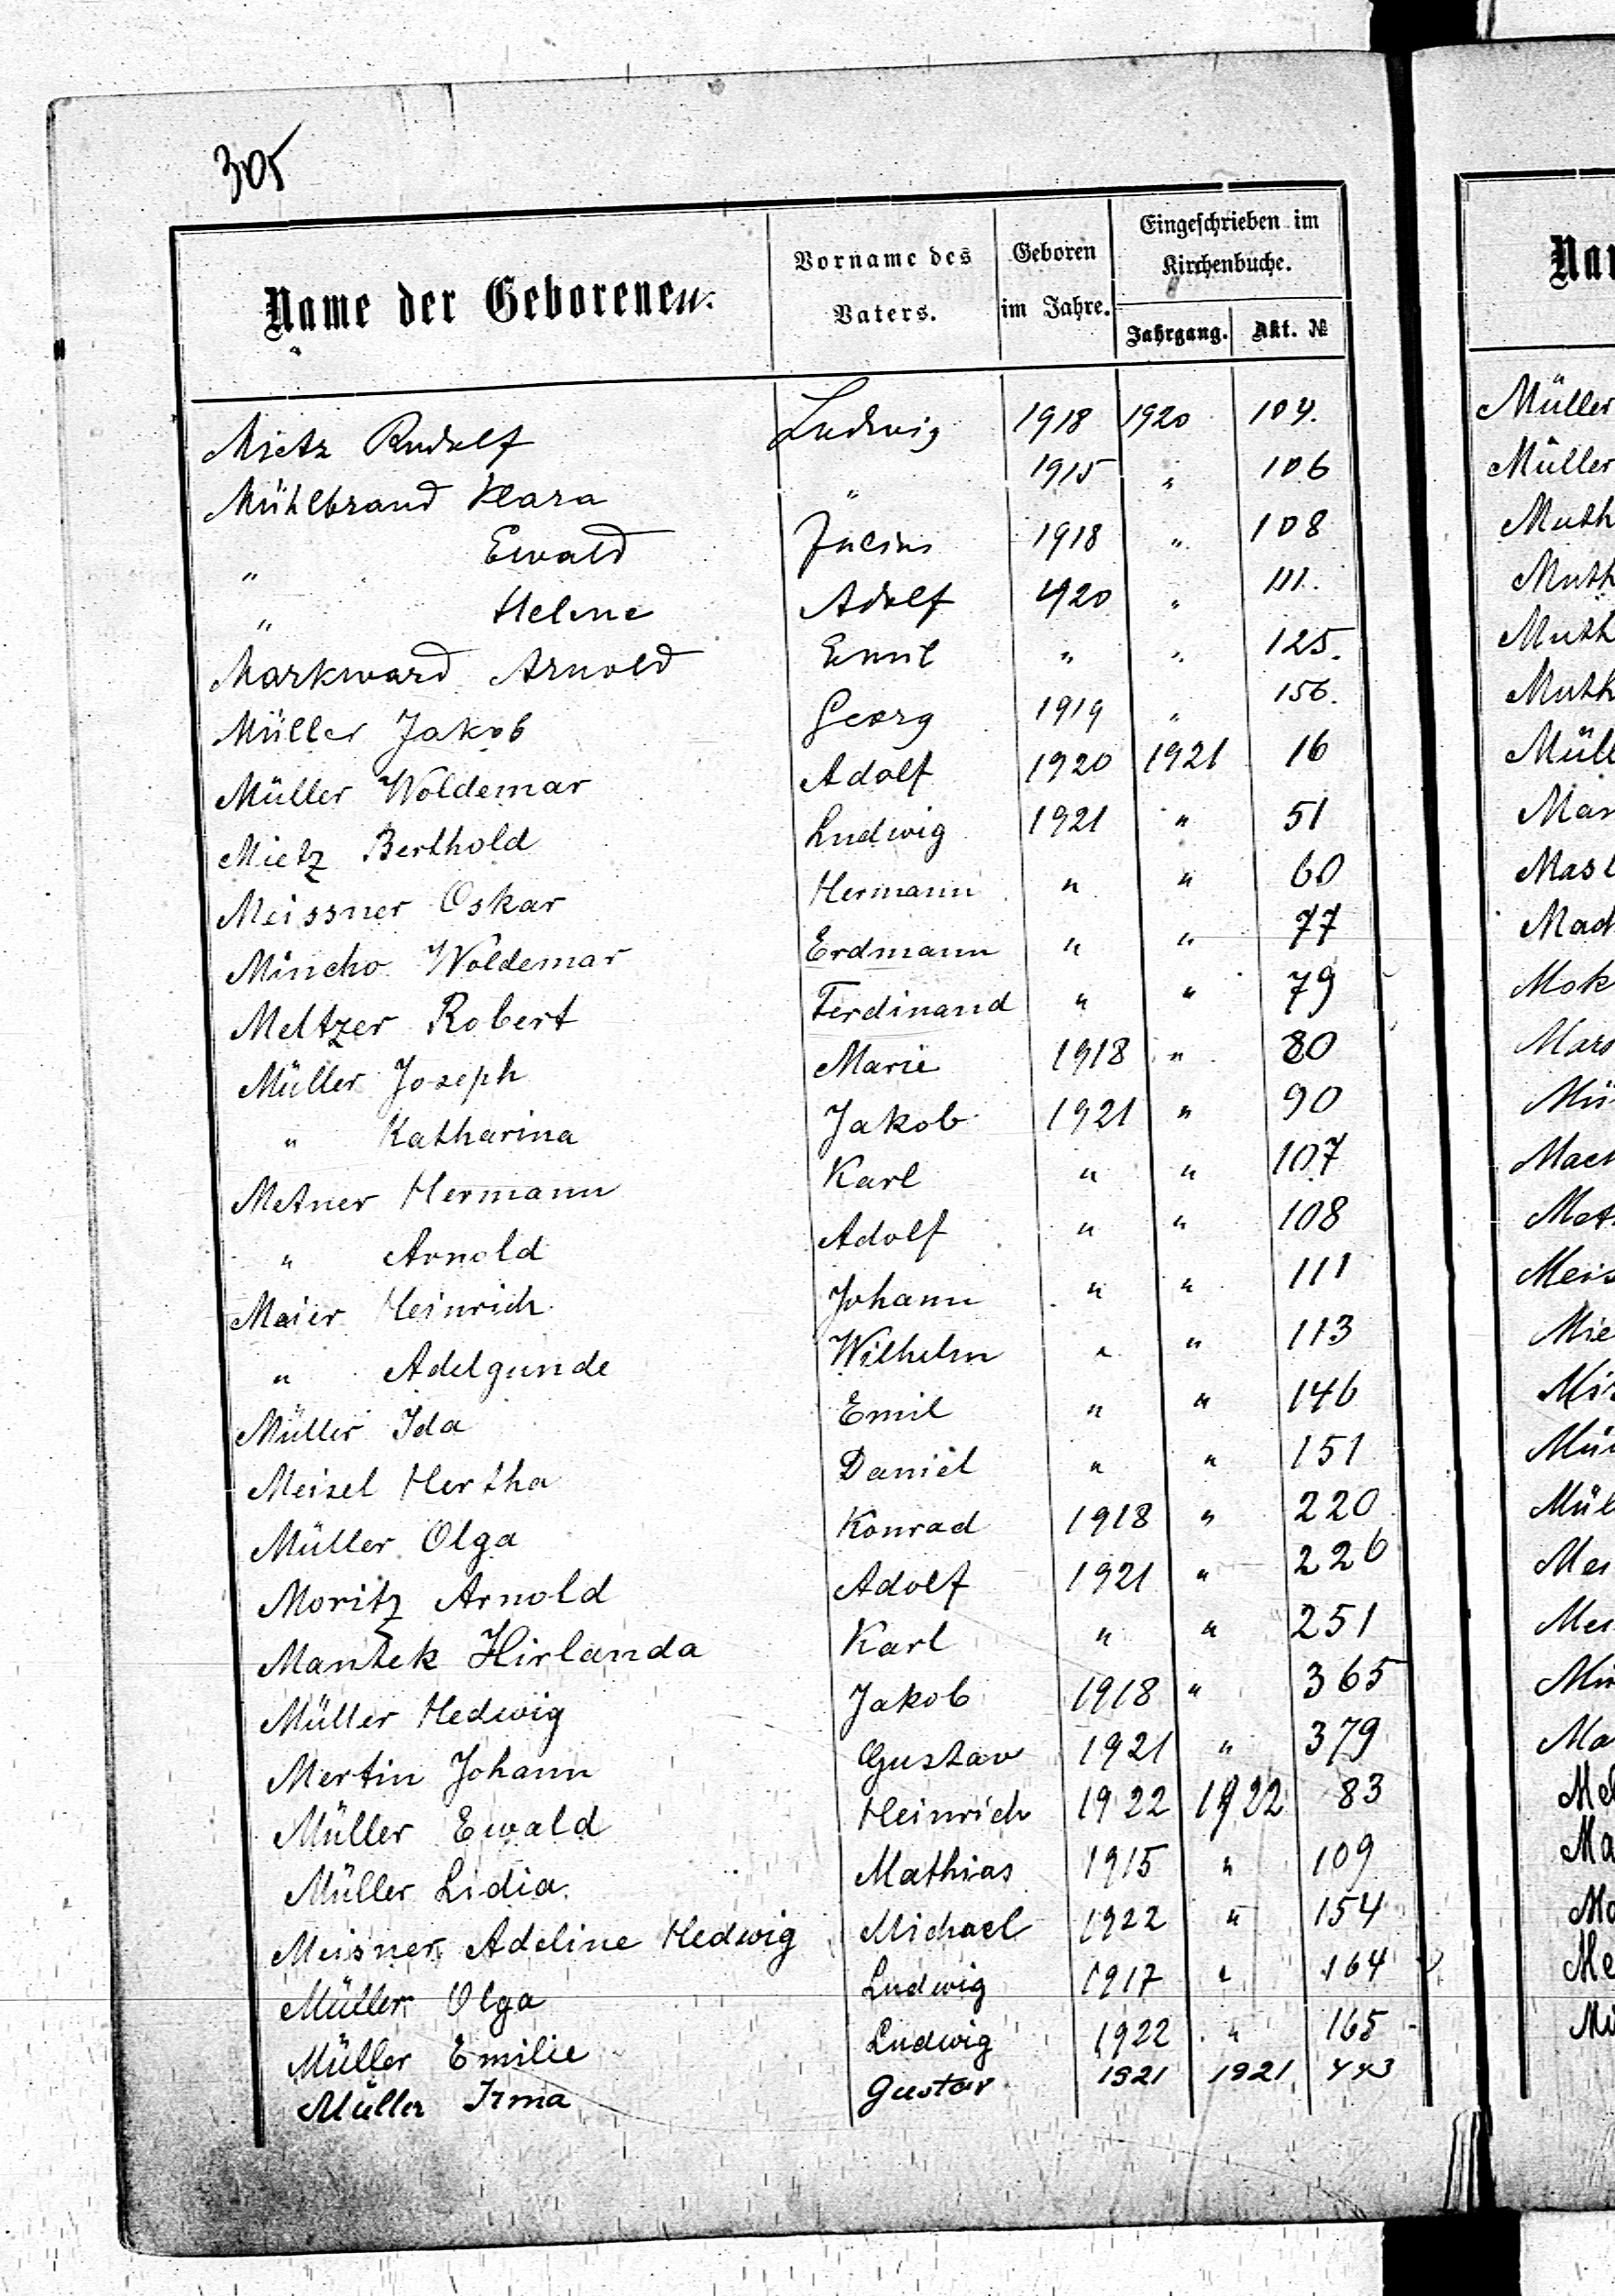 305
Name der Geborenen.
Vorname des Vaters.
Geboren im Jahre.
Eingeschrieben im Kirchenbuche.
Jahrgang. Akt. №
Mietz Rudolf Ludwig 1918 1920 104.
Mühlbrand Klara " 1915 " 106
" Ewald Julius 1918 " 108
" Helene Adolf 1920 " 111.
Markward Arnold Emil " " 125.
Müller Jakob Georg 1919 " 156.
Müller Woldemar Adolf 1920 1921 16
Mietz Berthold Ludwig 1921 " 51
Meissner Oskar Hermann " " 60
Mincho Woldemar Erdmann " " 77
Meltzer Robert Ferdinand " " 79
Müller Joseph Marie 1918 " 80
" Katharina Jakob 1921 " 90
Metner Hermann Karl " " 107
" Arnold Adolf " " 108
Maier Heinrich Johann " " 111
" Adelgunde Wilhelm " " 113
Müller Ida Emil " " 146
Meisel Hertha Daniel " " 151
Müller Olga Konrad 1918 " 220
Moritz Arnold Adolf 1921 " 226
Mantek Hirlanda Karl " " 251
Müller Hedwig Jakob 1918 " 365
Mertin Johann Gustav 1921 " 379
Müller Ewald Heinrich 1922 1922 83
Müller Lidia Mathias 1915 " 109
Meisner Adeline Hedwig Michael 1922 " 154
Müller Olga Ludwig 1917 " 164
Müller Emilie Ludwig 1922 " 165
Müller Irma Gustav 1921 1921 443
Nar
Müller
Müller
Muth
Muth
Muth
Muth
Müll
Mar
Mad
Mok
Mars
Mü
Meis
Mie
Mül
Mei
Ma
Ma
Me